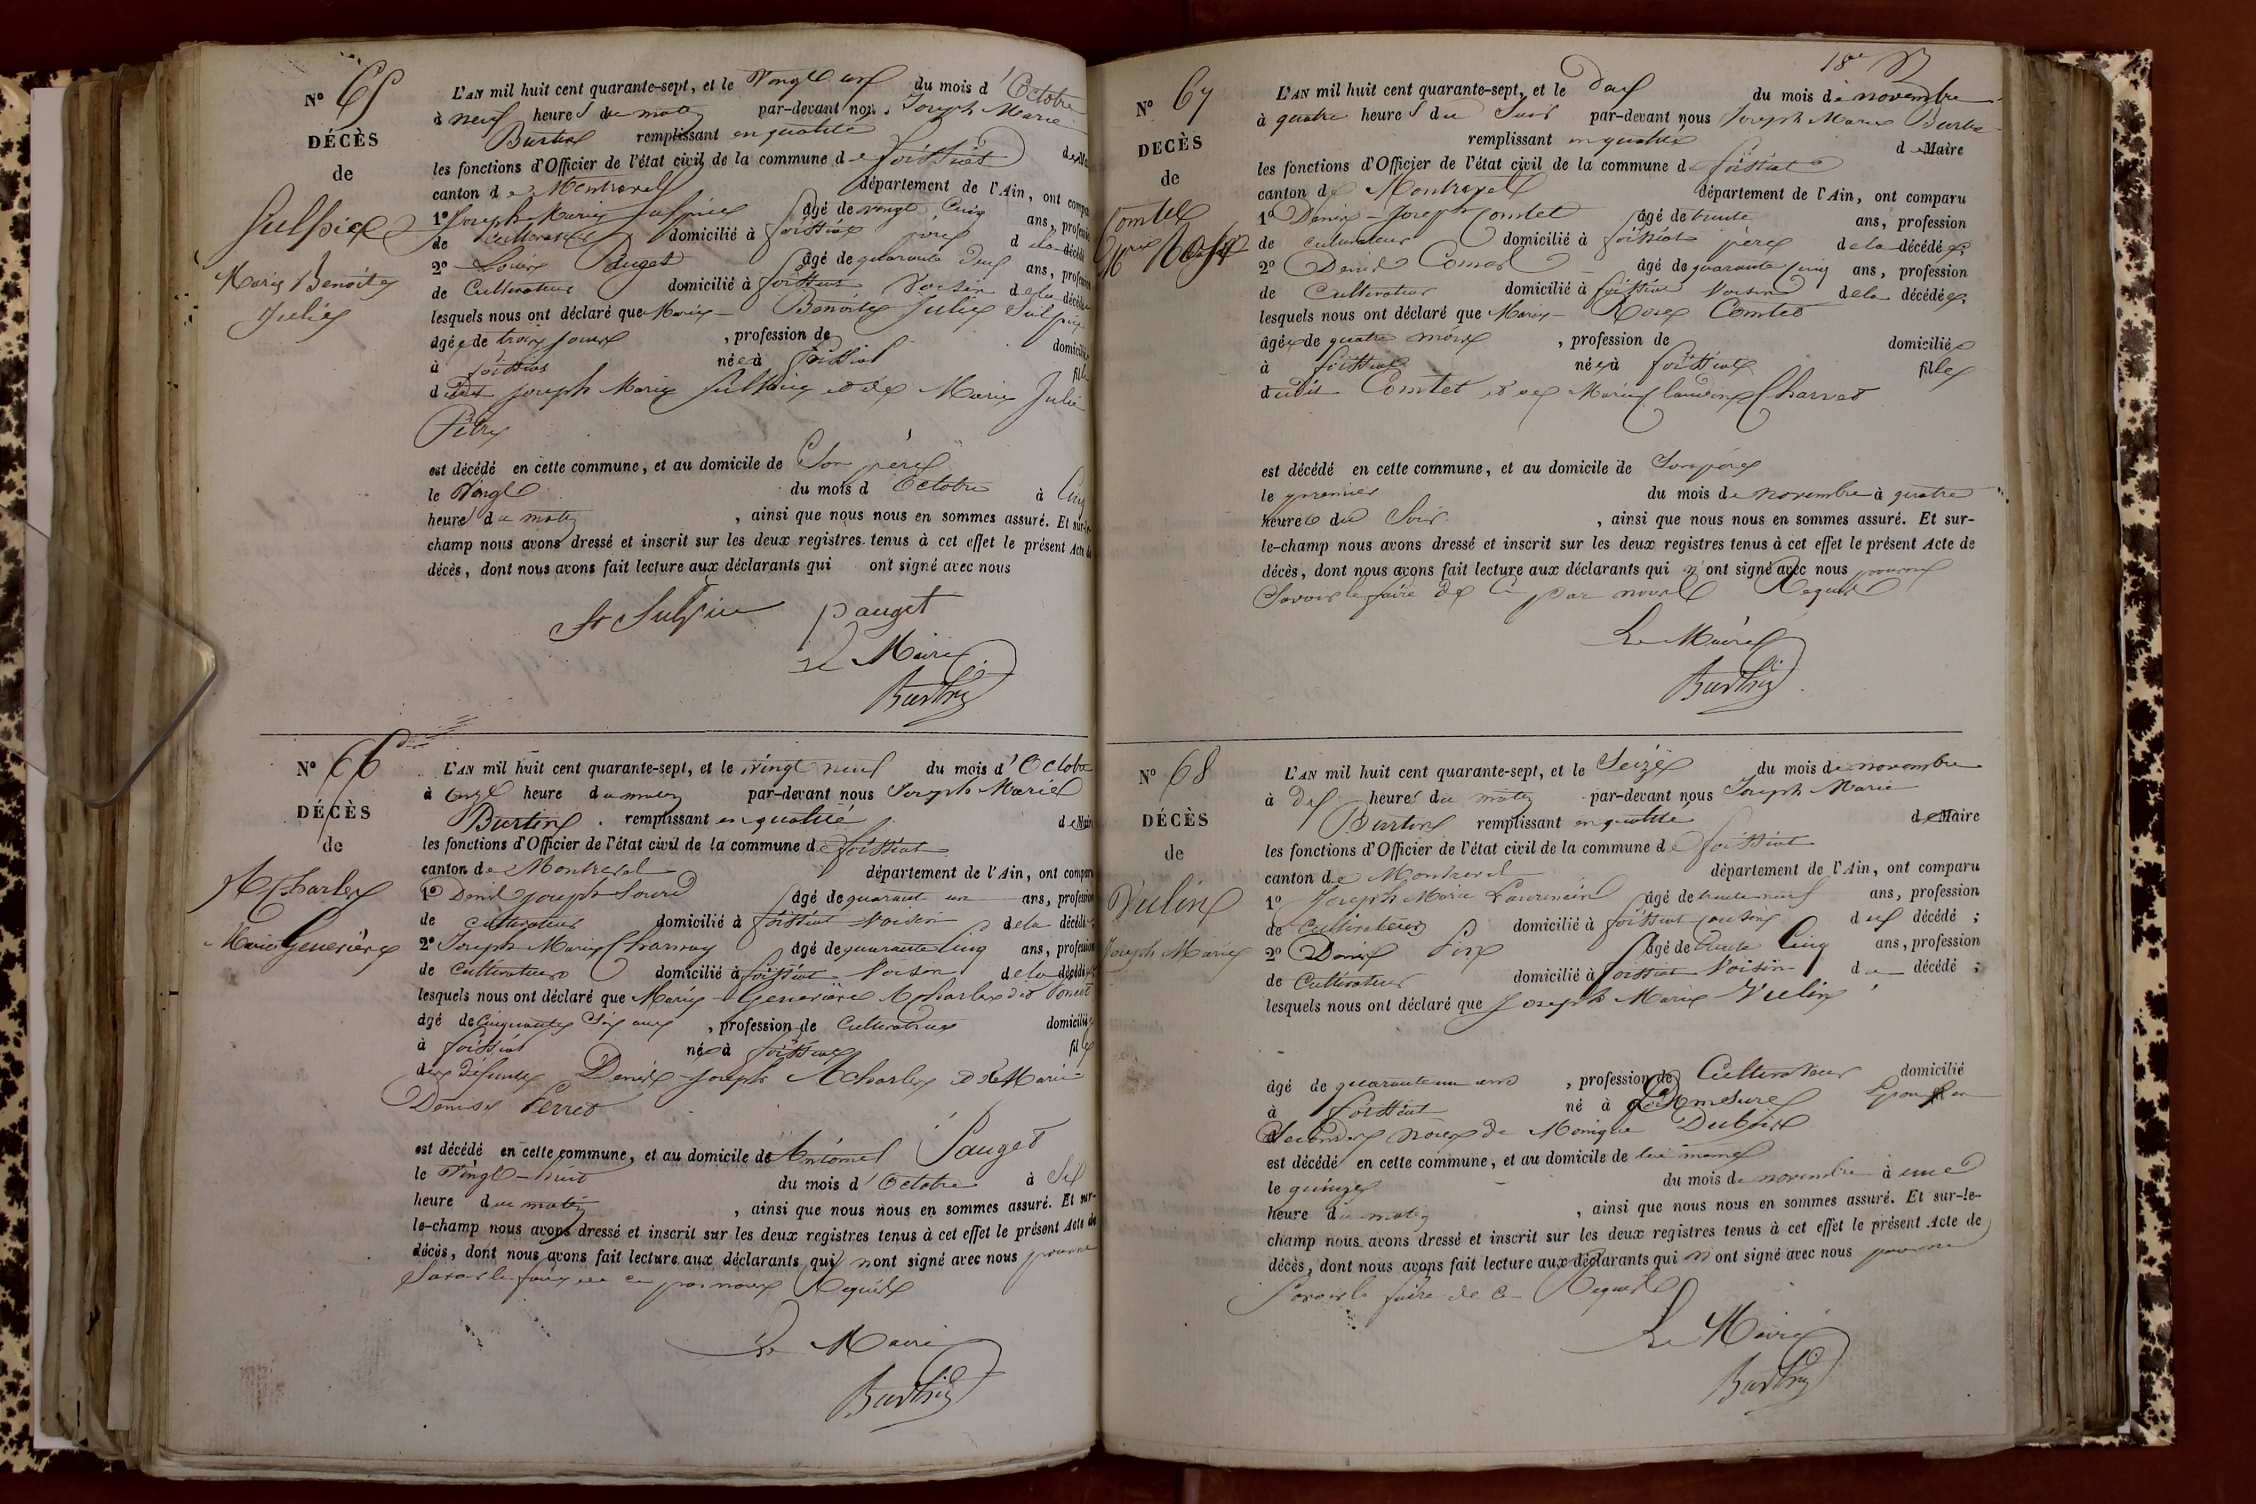 N° 65
DÉCÈS
de
Sulpice
Marie Benoite
Julie
L'AN mil huit cent quarante-sept, et le Vingt un du mois d'Octobre
à neuf heures du matin par-devant nous Joseph Marie
Burtin remplissant en qualité de Maire
les fonctions d'Officier de l'état civil de la commune de foissiat
canton de Montrevel département de l'Ain, ont comparu
1° Joseph Marie Sulpice âgé de vingt cinq ans, profession
de cultivateur domicilié à foissiat père de la décédé
2° Louis Pauget âgé de quarante deux ans, profession
de Cultivateur domicilié à foissiat Voisin de la décédé
lesquels nous ont déclaré que Marie Benoite Julie Sulpice
âgée de trois jours , profession de domicilié
à foissiat née à foissiat fille
dudit Joseph Marie Sulpice et de Marie Julie
est décédé en cette commune, et au domicile de Son père
le Vingt du mois d'Octobre à Cinq
heures du matin , ainsi que nous nous en sommes assuré. Et sur-le-
champ nous avons dressé et inscrit sur les deux registres tenus à cet effet le présent Acte de
décès, dont nous avons fait lecture aux déclarants qui ont signé avec nous
St Sulpice pauget
Le Maire
Burtin
N° 66
DÉCÈS
de
Marie Geneviève
L'AN mil huit cent quarante-sept, et le vingt neuf du mois d'Octobre
à onze heure du matin par-devant nous Joseph Marie
Burtin remplissant en qualité de Maire
les fonctions d'Officier de l'état civil de la commune de foissiat
canton de Montrevel département de l'Ain, ont comparu
1° Denis Joseph âgé de quarant un ans, profession
de cultivateur domicilié à foissiat Voisin de la décédé
2° Joseph Marie Charnay âgé de quarante Cinq ans, profession
de cultivateur domicilié à foissiat Voisin de la décédé
lesquels nous ont déclaré que Marie Geneviève
âgé de Cinquante Six ans , profession de Cultivatrice domicilié
à foissiat née à foissiat fille
des défunts Denis Joseph et de Marie
Denise Perret
est décédé en cette commune, et au domicile de Antoine Pauget
le Vingt-huit du mois d'Octobre à Six
heure du matin , ainsi que nous nous en sommes assuré. Et sur-
le-champ nous avons dressé et inscrit sur les deux registres tenus à cet effet le présent Acte de
décès, dont nous avons fait lecture aux déclarants qui n'ont signé avec nous pour ne
Savoir le faire de ce par nous Requis
Le Maire
Burtin
N° 67
DÉCÈS
de
Comtet
Marie Rose
L'AN mil huit cent quarante-sept, et le Deux du mois de novembre
à quatre heures du Soir par-devant nous Joseph Marie Burtin
remplissant en qualité de Maire
les fonctions d'Officier de l'état civil de la commune de foissiat
canton de Montrevel département de l'Ain, ont comparu
1° Denis-Joseph Comtet âgé de trente ans, profession
de cultivateur domicilié à foissiat père de la décédée;
2° Denis âgé de quarante cinq ans, profession
de Cultivateur domicilié à foissiat Voisin de la décédée;
lesquels nous ont déclaré que Marie Rose Comtet
âgée de quatre mois , profession de domiciliée
à foissiat née à foissiat fille
dudit Comtet et de Marie Claudine Charvet
est décédé en cette commune, et au domicile de Son père
le premier du mois de novembre à quatre
heures du Soir , ainsi que nous nous en sommes assuré. Et sur-
le-champ nous avons dressé et inscrit sur les deux registres tenus à cet effet le présent Acte de
décès, dont nous avons fait lecture aux déclarants qui n'ont signé avec nous pour ne
Savoir le faire de ce par nous Requis
Le Maire
Burtin
N° 68
DÉCÈS
de
Vulin
Joseph Marie
L'AN mil huit cent quarante-sept, et le Seize du mois de novembre
à Dix heures du matin par-devant nous Joseph Marie
Burtin remplissant en qualité de Maire
les fonctions d'Officier de l'état civil de la commune de foissiat
canton de Montrevel département de l'Ain, ont comparu
1° Joseph Marie Laurencin âgé de trente neuf ans, profession
de Cultivateur domicilié à foissiat cousin du décédé ;
2° Denis âgé de trente Cinq ans, profession
de Cultivateur domicilié à foissiat Voisin du décédé ;
lesquels nous ont déclaré que Joseph Marie Vulin
âgé de quarante un ans , profession de Cultivateur domicilié
à foissiat né à Epoux en
Secondes noces de Monique Dubois
est décédé en cette commune, et au domicile de lui même
le quinze du mois de novembre à une
heure du matin , ainsi que nous nous en sommes assuré. Et sur-le-
champ nous avons dressé et inscrit sur les deux registres tenus à cet effet le présent Acte de
décès, dont nous avons fait lecture aux déclarants qui n'ont signé avec nous pour ne
Savoir le faire de ce Requis
Le Maire
Burtin